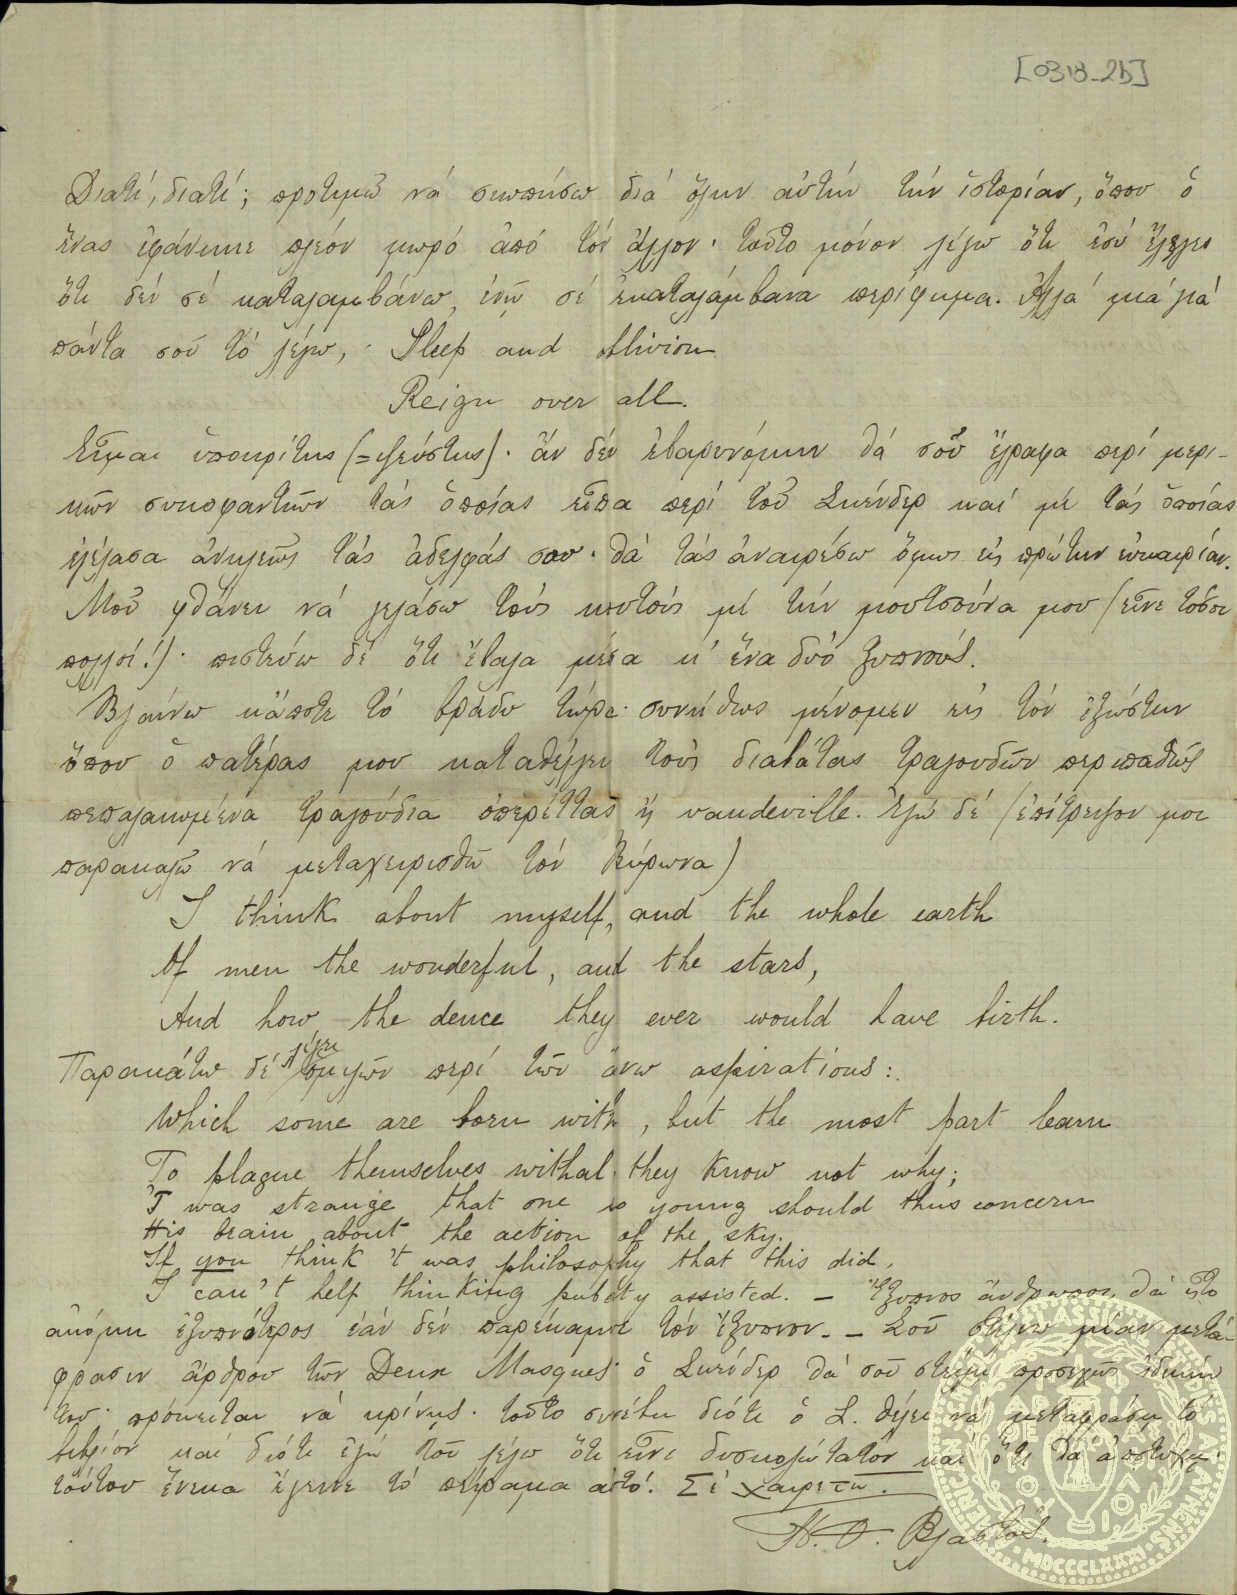 [0318-2b]
Διατί, διατί; προτιμῶ νά σιωπήσω διά ὅλην αὐτήν τήν ἱστορίαν, ὅπου ὁ
ἕνας ἐφάνηκε πλεόν μωρό ἀπό τόν ἄλλον· τοῦτο μόνον λέγω ὅτι ἐσύ ἔλεγες
ὅτι δέν σέ καταλαμβάνω, ἐνῷ σέ ἐκαταλάμβανα περίφημα. Ἀλλά μιά γιά
πάντα σοῦ τό λέγω, Sleep and oblivion
Reign over all.
Εἶμαι ὑποκρίτης (=ψεύστης)· ἄν δέν ἐβαρυνόμην θά σοῦ ἔγραφα περί μερι-
κῶν συκοφαντιῶν τάς ὁποίας εἶπα περί τοῦ Σκένδερ καί μέ τάς ὁποίας
ἐγέλασα ἀνηλεῶς τάς ἀδελφάς σου· θά τάς ἀναιρέσω ὅμως εἰς πρώτην εὐκαιρίαν.
Μοῦ φθάνει νά γελάσω τούς κουτούς μέ τήν μουτσούνα μου (εἶνε τόσοι
πολλοί!)· πιστεύω δέ ὅτι ἔβαλα μέσα κ' ἕνα δυό ξυπνούς.
Βγαίνω κάποτε τό βράδυ τώρα· συνήθως μένομεν εἰς τόν ἐξώστην
ὅπου ὁ πατέρας μου καταθέλγει τούς διαβάτας τραγουδῶν περιπαθῶς
πεπαλαιωμένα τραγούδια ὀπερέττας ἤ vaudeville. Ἐγώ δέ (ἐπίτρεψόν μοι
παρακαλῶ νά μεταχειρισθῶ τόν Βύρωνα)
I think about myself, and the whole earth
Of men the wonderful, and the stars,
And how the deuce they ever would have birth.
Παρακάτω δέ λέγει ὁμιλῶν περί τῶν ἄνω aspirations:
Which some are born with, but the most part learn
To plague themselves withal they know not why;
'T was strange that one so young should thus concern
His brain about the action of the sky.
If you think 't was philosophy that this did,
I can't help thinking puberty assisted. — Ἔξυπνος ἄνθρωπος, θά ἦτο
ἀκόμη ἐξυπνότερος ἐάν δέν παρέκαμνε τόν ἔξυπνον. — Σοῦ στέλνω μίαν μετά-
φρασιν ἄρθρου τῶν Deux Masques· ὁ Σκένδερ θά σοῦ στείλῃ προσεχῶς ἰδικήν
του· πρόκειται νά κρίνῃς· τοῦτο συνέβη διότι ὁ Σ. θέλει νά μεταφράσῃ τό
βιβλίον καί διότι ἐγώ τοῦ λέγω ὅτι εἶνε δυσκολώτατον καί ὅτι θά ἀποτύχῃ·
τούτου ἕνεκα ἔγεινε τό πείραμα αὐτό. Σέ χαιρετῶ.
Π. Θ. Βλαστός.